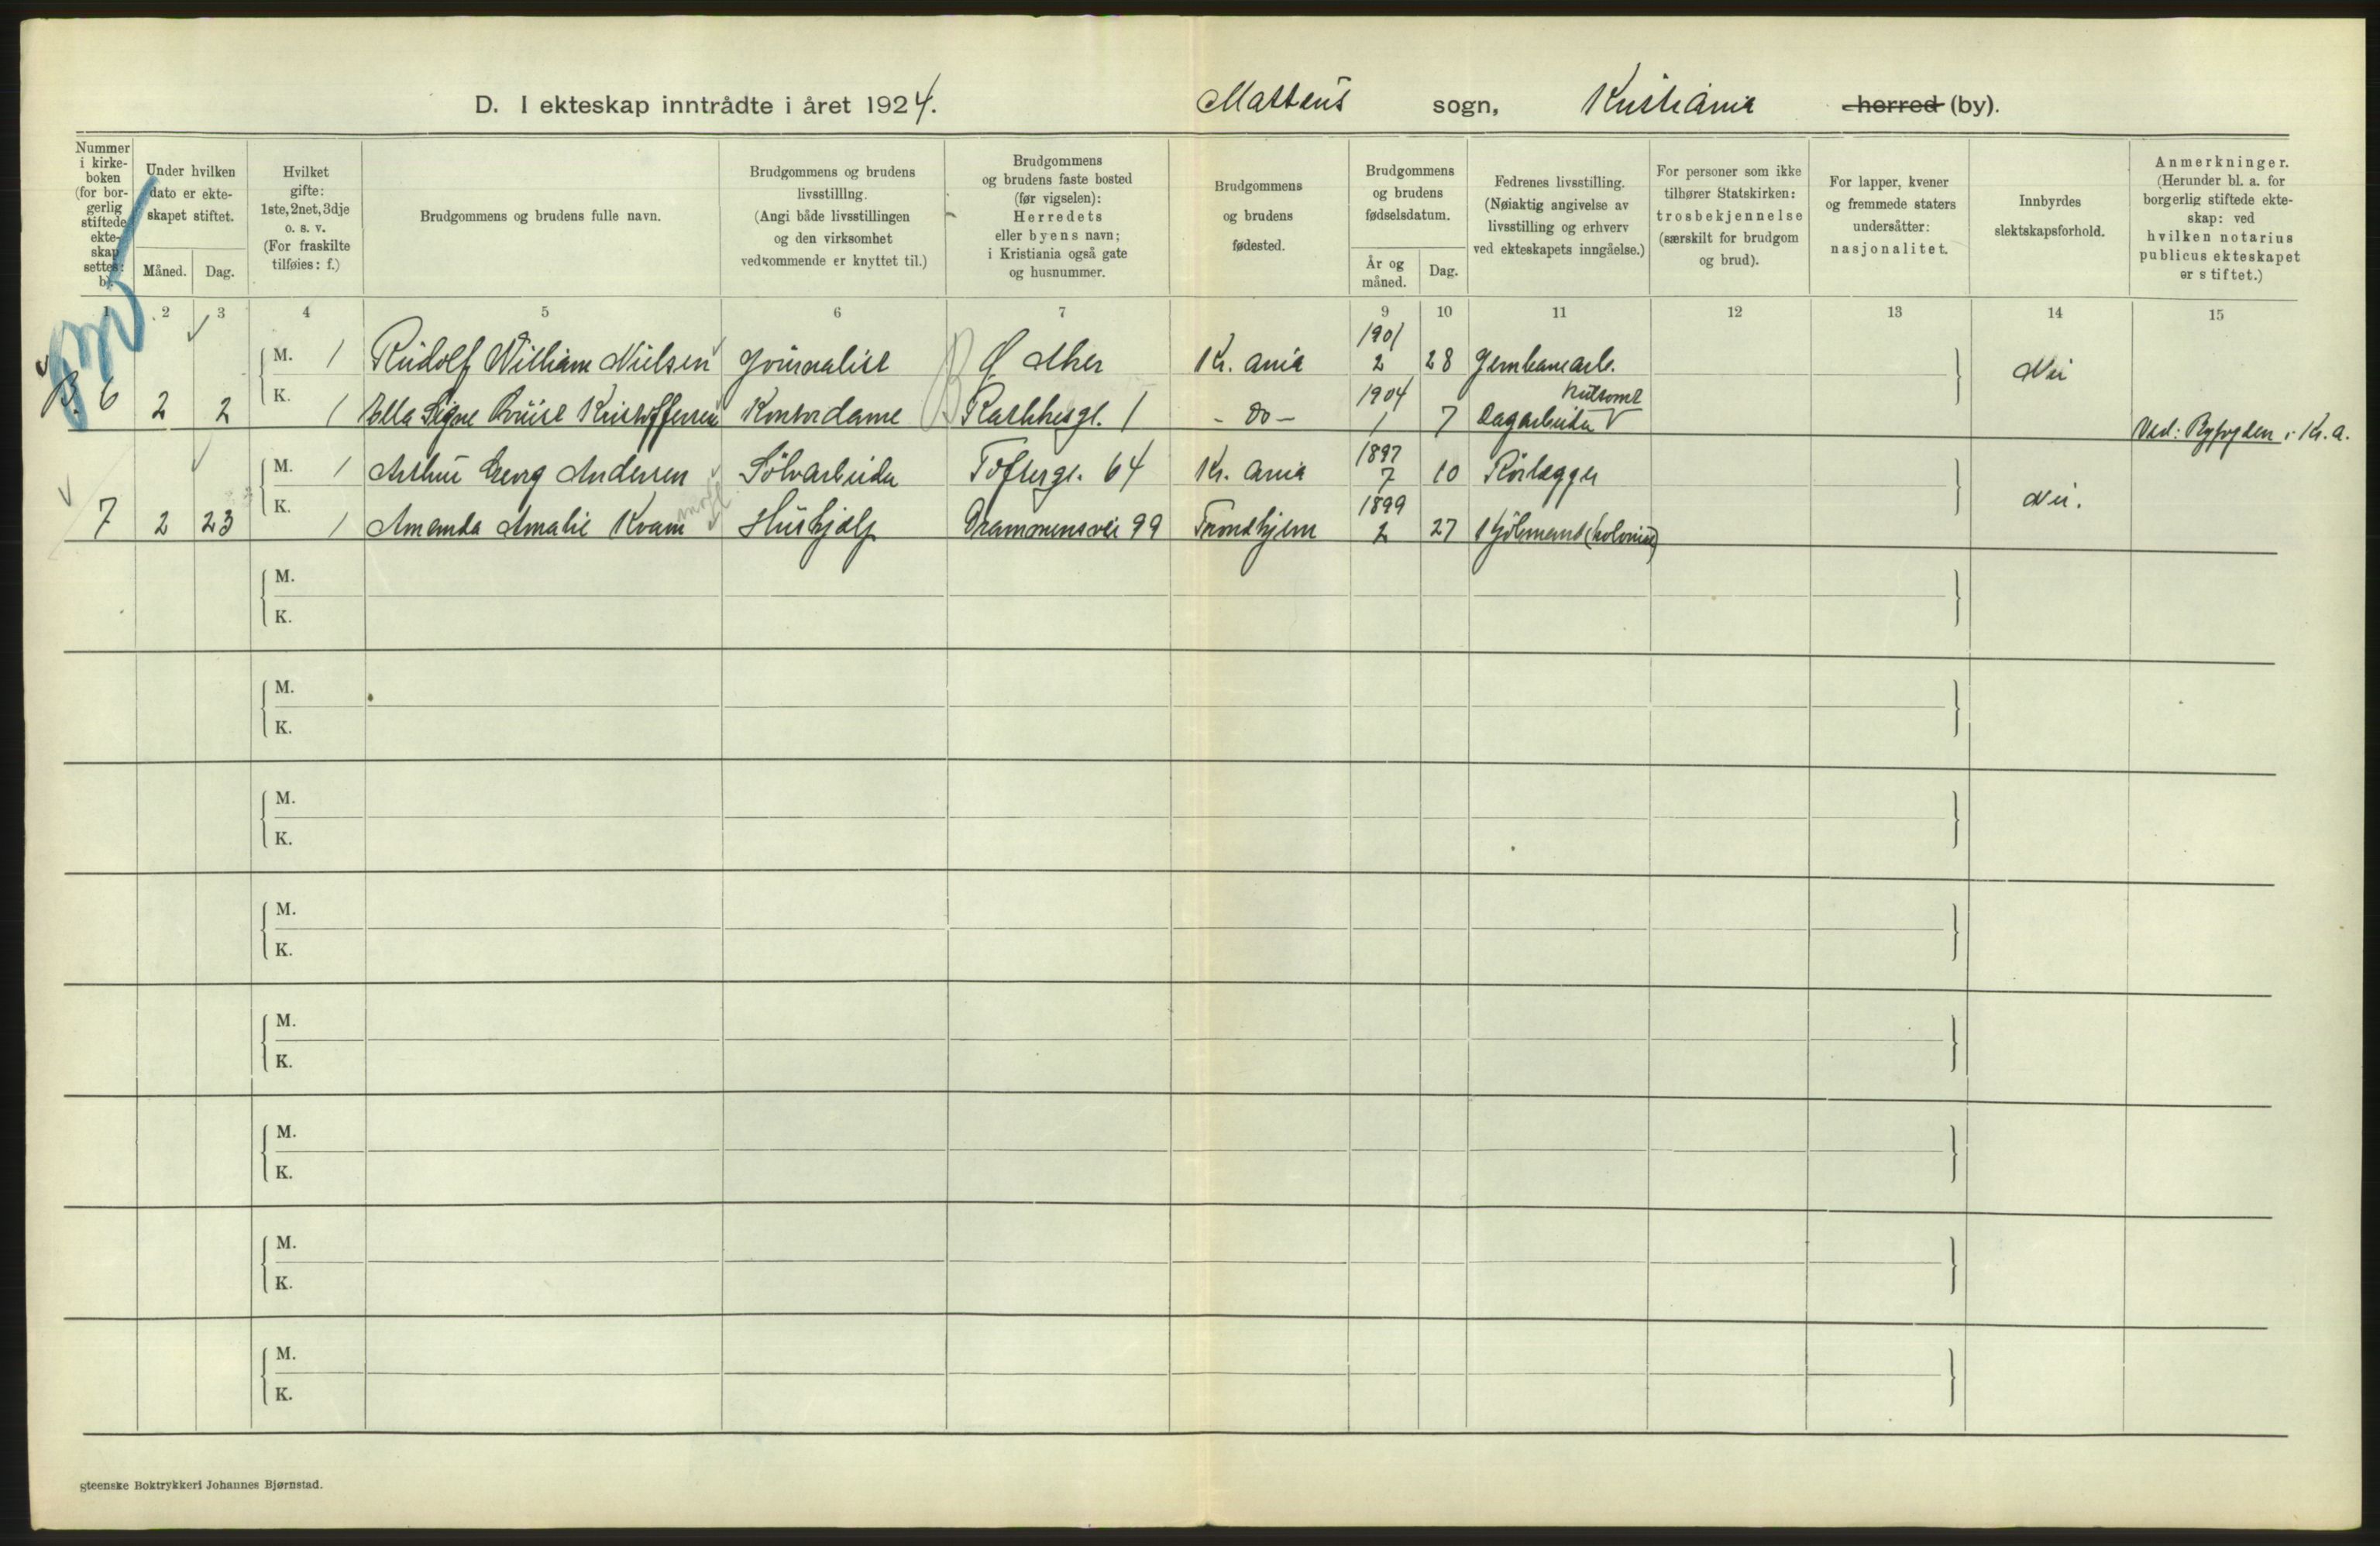 D. I ekteskap inntrådte i året 1924. Matteus sogn, Kristiania herred (by).
Nummer i kirke-boken (for bor-gerlig stiftede ekte-skap settes: b).
Under hvilken dato er ekte-skapet stiftet.
Måned. Dag.
Hvilket gifte: 1ste, 2net, 3dje o. s. v. (For fraskilte tilføies: f.)
Brudgommens og brudens fulle navn.
Brudgommens og brudens livsstilling. (Angi både livsstillingen og den virksomhet vedkommende er knyttet til.)
Brudgommens og brudens faste bosted (før vigselen): Herredets eller byens navn; i Kristiania også gate og husnummer.
Brudgommens og brudens fødested.
Brudgommens og brudens fødselsdatum.
År og måned. Dag.
Fedrenes livsstilling. (Nøiaktig angivelse av livsstilling og erhverv ved ekteskapets inngåelse.)
For personer som ikke tilhører Statskirken: trosbekjennelse (særskilt for brudgom og brud).
For lapper, kvener og fremmede staters undersåtter: nasjonalitet.
Innbyrdes slektskapsforhold.
Anmerkninger. (Herunder bl. a. for borgerlig stiftede ekte-skap: ved hvilken notarius publicus ekteskapet er stiftet.)
1 2 3 4 5 6 7 9 10 11 12 13 14 15
M. 1 Rudolf William Nielsen Journalist Ø Aker Kr. ania 1901 2 28 Jernbanearb. Nei
B. 6 2 2 K. 1 Ella Signe Louise Kristoffersen Kontordame Rathkesgt. 1 - Do - 1904 1 7 Dagarbeider Ved: Byfogden i Kr. a.
M. 1 Arthur Georg Andersen Sølvarbeider Toftesgt. 64 Kr. ania 1897 7 10 Rørlægger
7 2 23 K. 1 Amanda Amalie Kvam Hushjælp Drammensvei 99 Trondhjem 1899 2 27 Kjøbmand (kolonial) Nei.
M.
K.
M.
K.
M.
K.
M.
K.
M.
K.
M.
K.
M.
K.
M.
K.
steenske Boktrykkeri Johannes Bjørnstad.